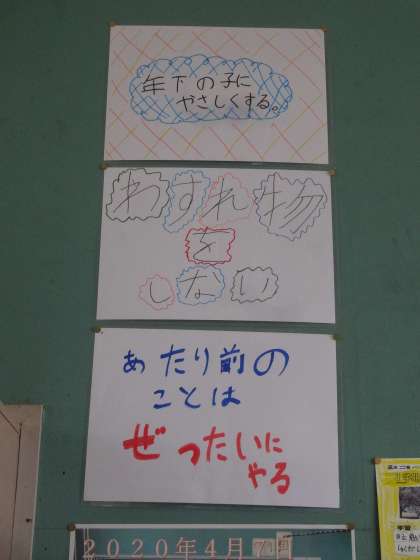 年下の子に
やさしくする。
わすれ物
を
しない
あたり前の
ことは
ぜったいに
やる
2020年4月